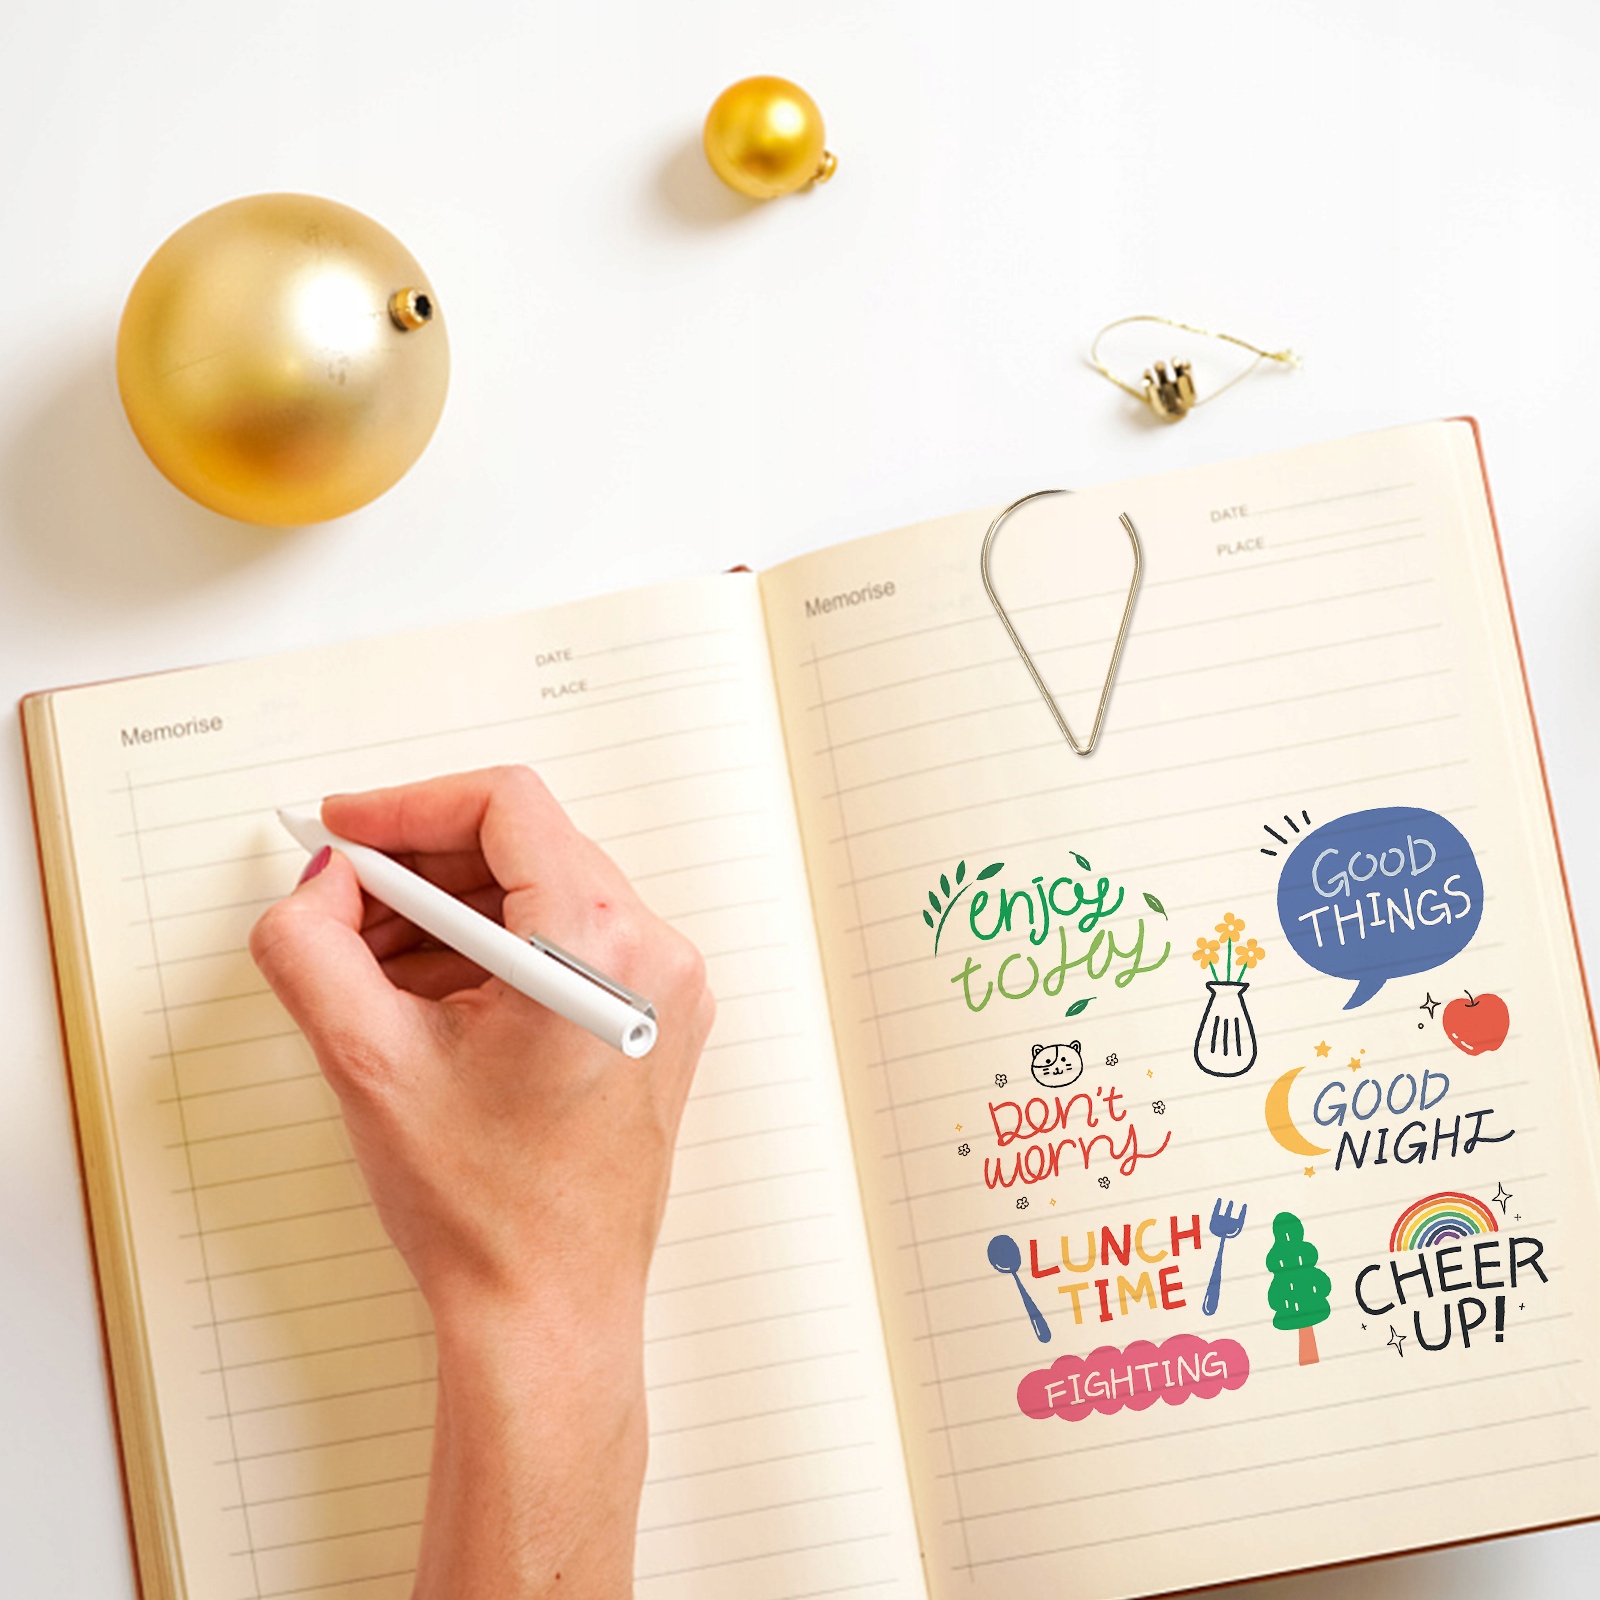 Memorise
DATE
PLACE
Memorise
DATE
PLACE
enjoy
today
GOOD
THINGS
Don't
worry
GOOD
NIGHT
LUNCH
TIME
CHEER
UP!
FIGHTING